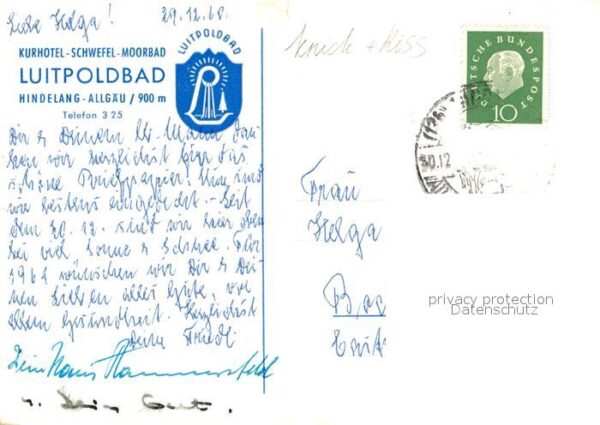 Liebe Helga! 29.12.60.
KURHOTEL-SCHWEFEL-MOORBAD
LUITPOLDBAD
HINDELANG-ALLGÄU / 900 m
Telefon 3 25
LUITPOLDBAD
Dir & Deinem
ken wir herzlichst für das
schöne Briefpapier! Nun sind
wir bestens eingedeckt. - Seit
dem 20. 12. sind wir hier oben
bei viel Sonne & Schnee. Für
1961 wünschen wir Dir & Dei-
nen Lieben alles Gute, vor
allem Gesundheit. Herzlichst
Deine Friedl
Dein Hans
u. Dein
Knick + Riss
DEUTSCHE BUNDESPOST
10
30.12
Frau
Helga
privacy protection
Datenschutz